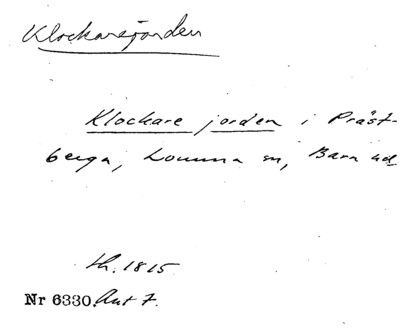 Klockarejorden
Klockare jorden i Präst-
berga, Lomma sn, Bara hd
th. 1815
Nr 6330. Aut 7.